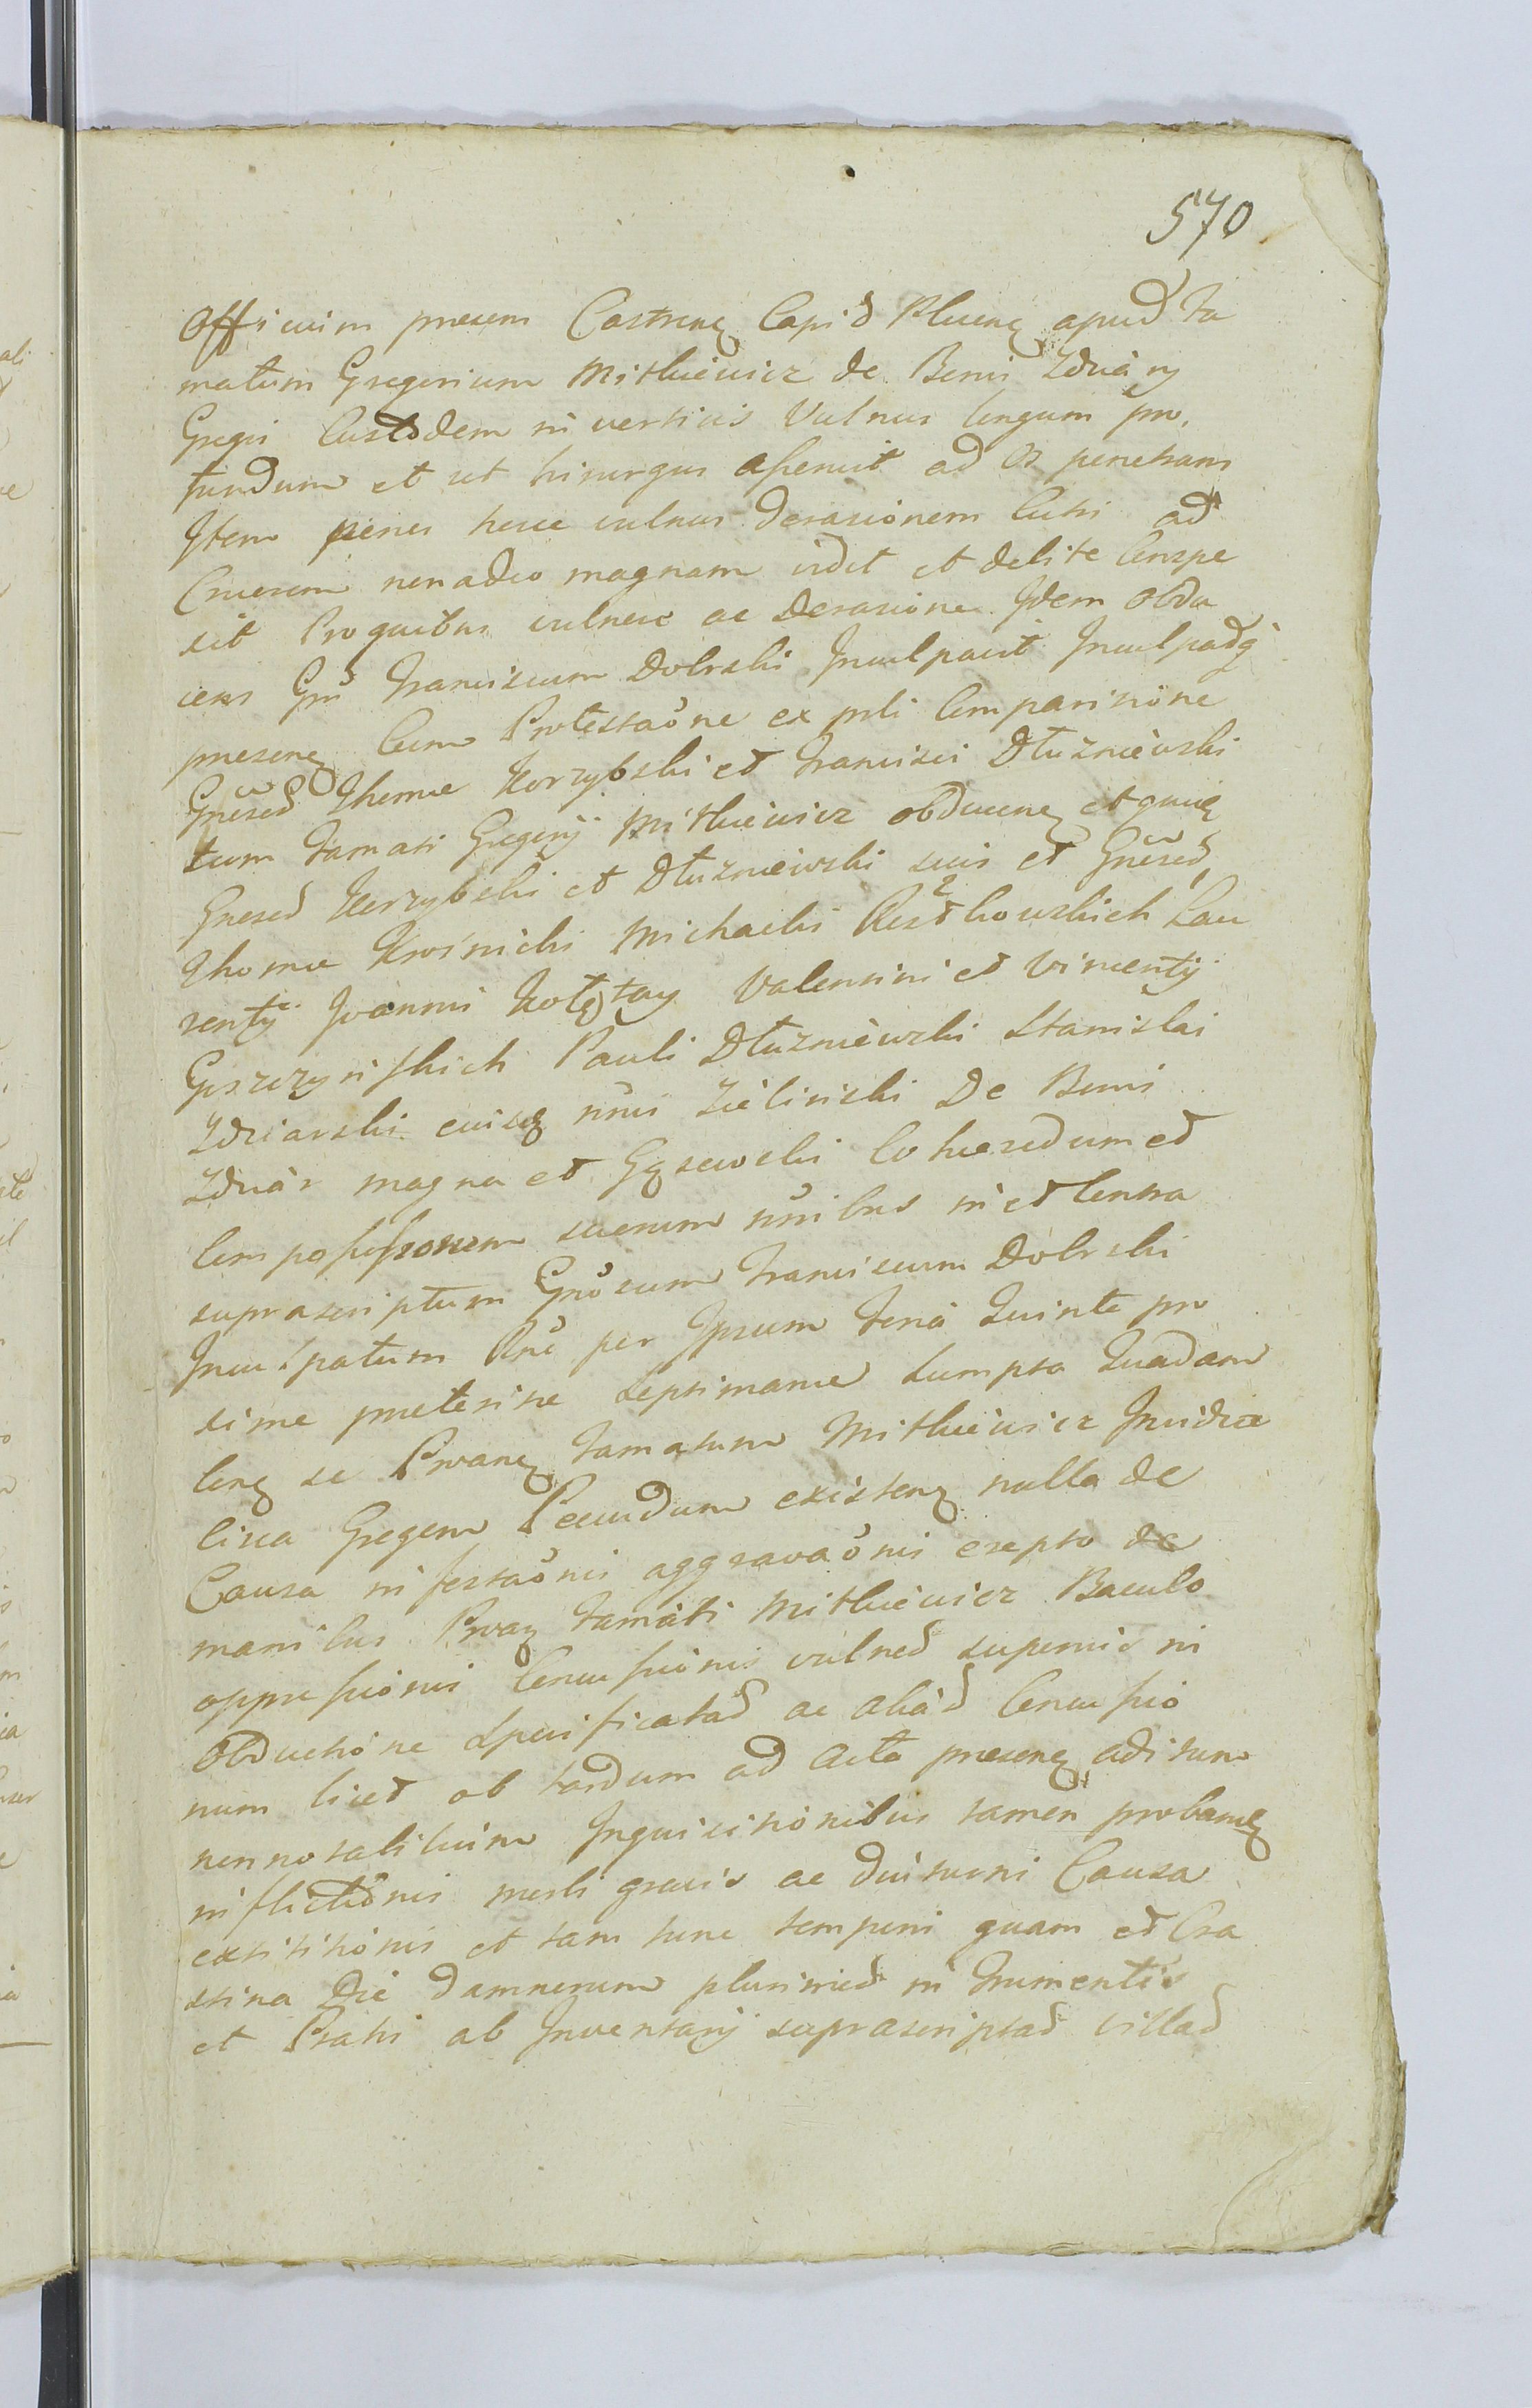 570
Officium presens Castrense Capit Plocense apud Fa
matum Gregorium Mitkiewicz de Bonis Zdziary
Gregis Custodem in verticis Vulnus longum pro,
fundum et ut hirurgus asseruit ad os penetrans
Item penes hocce vulnus Derasionem Cutis ad
Cruorem non adeo magnam vidit et debite Conspe
xit Pro quibus vulnere ac Derasione Idem obdu
cens Gnm Franciscum Dobrski Inculpavit Inculpatq
presens Cum Protestaone ex psli Comparisione
Gnrsoꝝ Thomae Korzybski et Francisci Dłuzniewski
tum Famati Gregorij Mitkiewicz obducens et quie
Gnrsoꝝ Korzybski et Dłuzniewski suis et Gnrsoꝝ
Thomae Krośnicki Michaelis Rzeszotkowskich Lau
rentij Joannis Kołłątay Valentini et Vincentij
Goszczynskich Pauli Dłuzniewski Stanislai
Zdziarski cuiusq nris Zielinski De Bonis
Zdziar magna et Gąsewski Cohaeredum et
Compossessorum suorum nnibus in et Contra
suprascriptum Gnosum Franciscum Dobrski
Inculpatum Rne per Ipsum Feria Quinta pro
xime praeteritae Septimanae Sumpta Quadam
Cons se Pvans Famatum Mitkiewicz Invidia
Circa Gregem Pecudum existens nulla de
Causa infestaonis aggravaonis erepto de
manibus Pvans Famati Mitkiewicz Baculo
oppressionis Concussionis vulneꝝ superius in
Obductione Specificataꝝ ac aliaꝝ Concussio
num licet ob tardum ad Acta presens aditum
non notabilium Inquisitionibus tamen probans
inflictionis morbi gravis ac diuturni Causa
extitionis et tam tunc temporis quam et Cra
stina Die Damnorum plurimoꝝ in Frumentis
et Pratis ab Inventarij suprascriptaꝝ villaꝝ